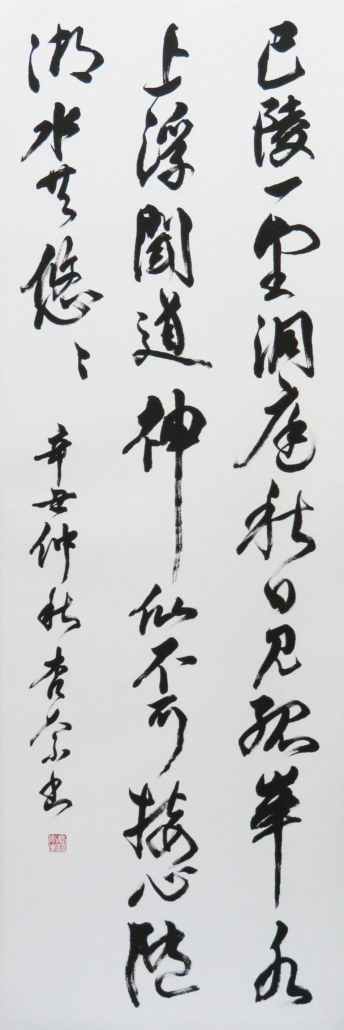 巴陵一望洞庭秋日見孤峯水
上浮聞道神仙不可接心隨
湖水共悠々
辛丑仲秋杏奈書